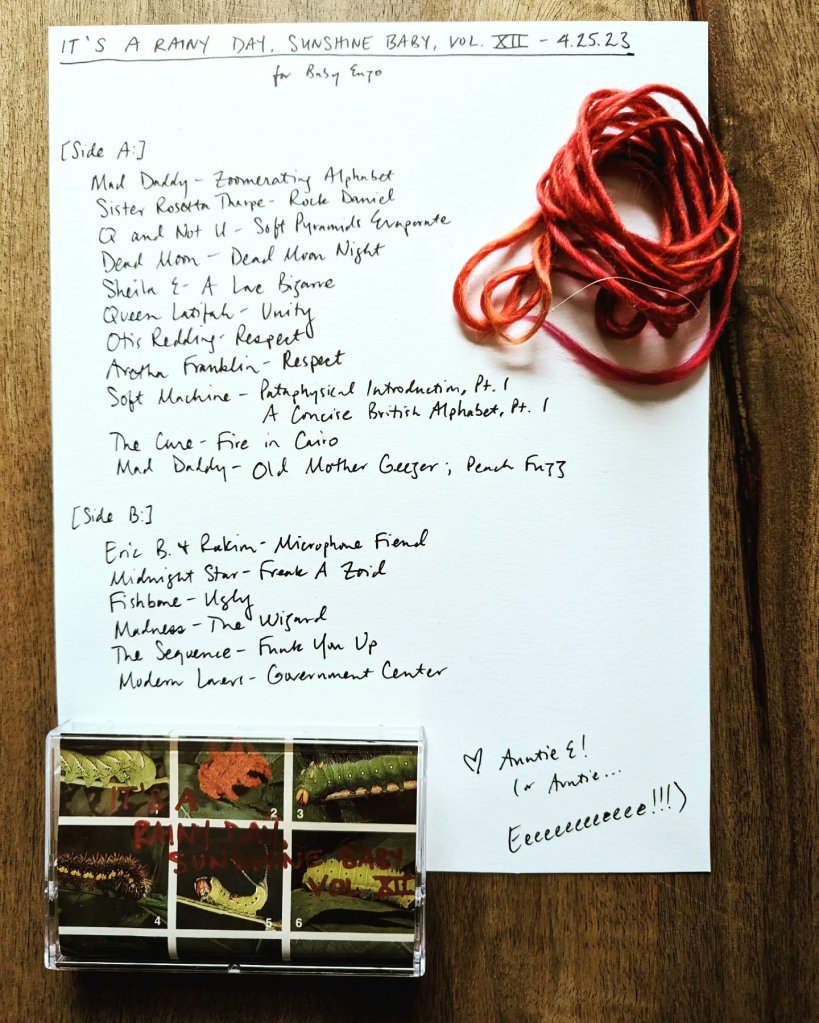 IT'S A RAINY DAY, SUNSHINE BABY, VOL. XII - 4.25.23
for Baby Enzo
[Side A:]
Mad Daddy - Zoomerating Alphabet
Sister Rosetta Tharpe - Rock Daniel
Q and Not U - Soft Pyramids Evaporate
Dead Moon - Dead Moon Night
Sheila E - A Love Bizarre
Queen Latifah - Unity
Otis Redding - Respect
Aretha Franklin - Respect
Soft Machine - Pataphysical Introduction, Pt. 1
A Concise British Alphabet, Pt. 1
The Cure - Fire in Cairo
Mad Daddy - Old Mother Geezer; Peach Fuzz
[Side B:]
Eric B. & Rakim - Microphone Fiend
Midnight Star - Freak A Zoid
Fishbone - Ugly
Madness - The Wizard
The Sequence - Funk You Up
Modern Lovers - Government Center
♡ Auntie E!
(or Auntie...
Eeeeeeeeeeee!!!)
IT'S A
RAINY DAY,
SUNSHINE BABY
VOL. XII
2 3
4 5 6